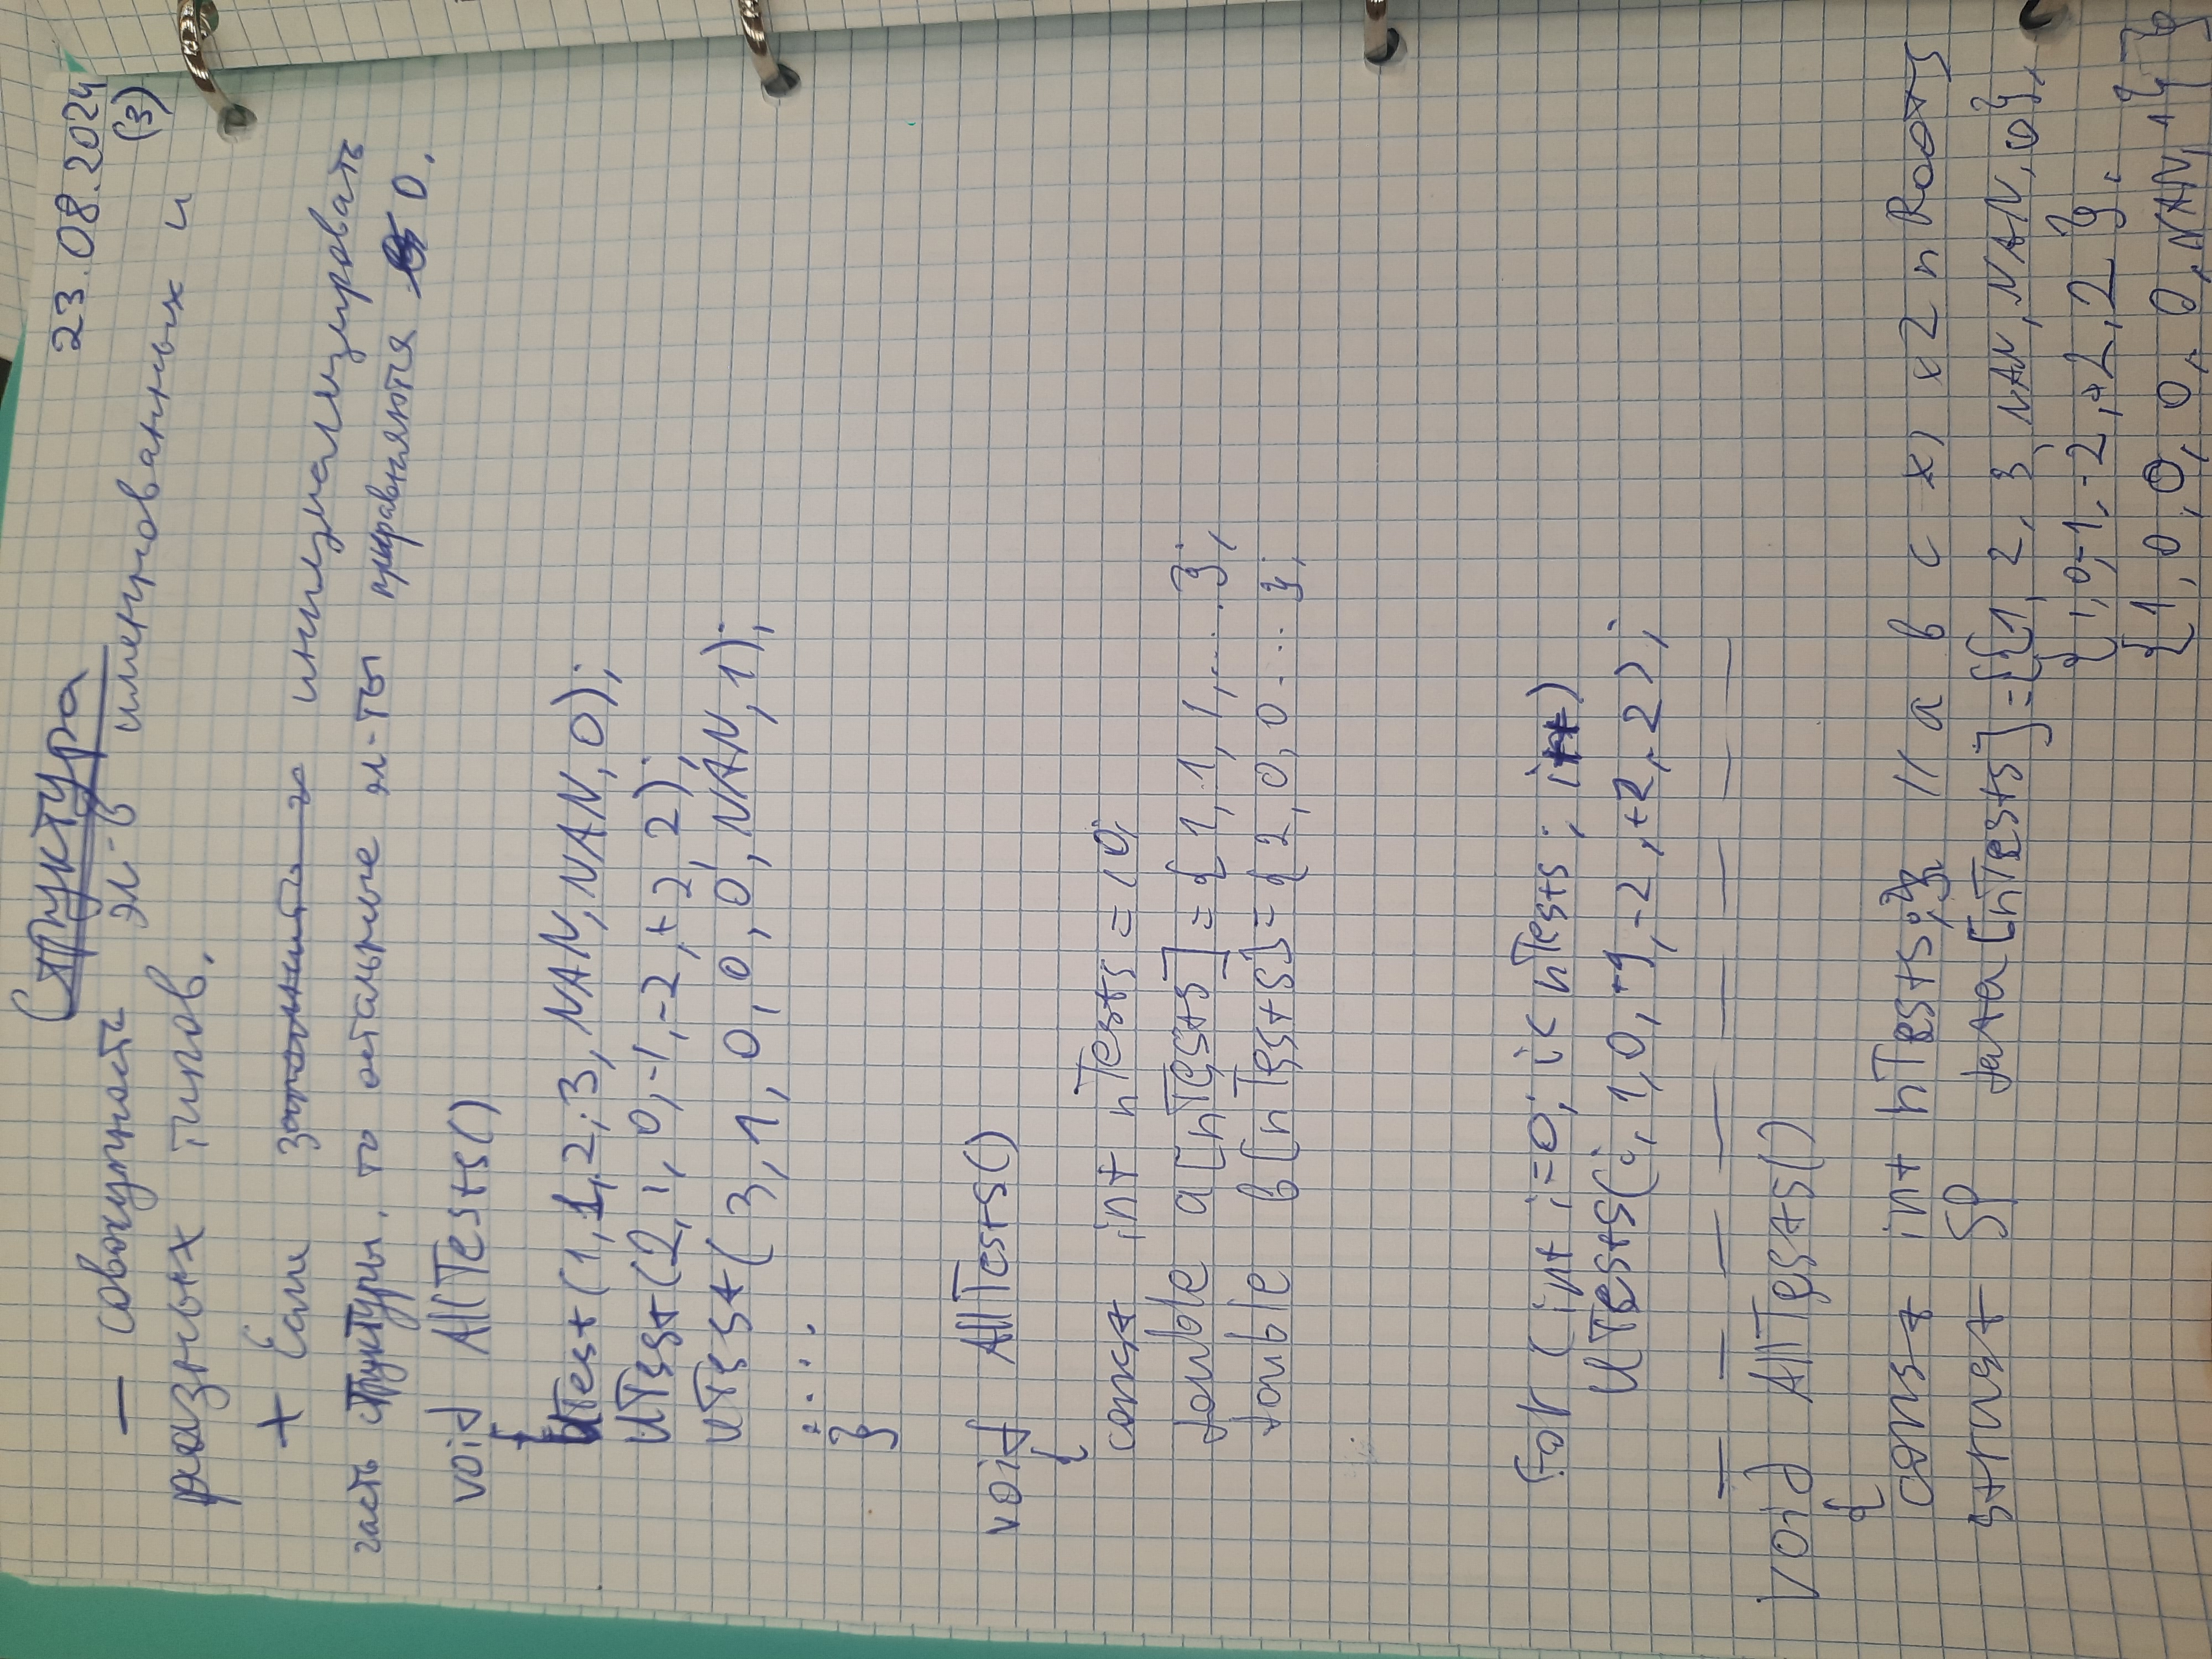 Структура
23.08.2024
(3)
— совокупность эл-в именнованных и
разных типов.
+ Если заполнить инициализировать
часть структуры, то остальные эл-ты приравняются 0.
void AllTests()
{
UTest(1,1,2,3,NAN,NAN,0);
UTest(2,1,0,-1,-2,+2,2);
UTest(3,1,0,0,0,NAN,1);
....
}
void AllTests()
{
const int nTests = 10;
double a[nTests]={1,1,1,....};
double b[nTests]={2,0,0....};
for (int i=0; i< nTests; i++)
UTests(i,1,0,-1,-2,+2,2);
— — — — — — — —
void AllTests()
{
const int nTests; // a b c x1 x2 nRoots
struct SP data[nTests]={{1,2,3,NAN,NAN,0},
{1,0,-1,-2,+2,2},
{1,0,0,0,0,NAN,1}}